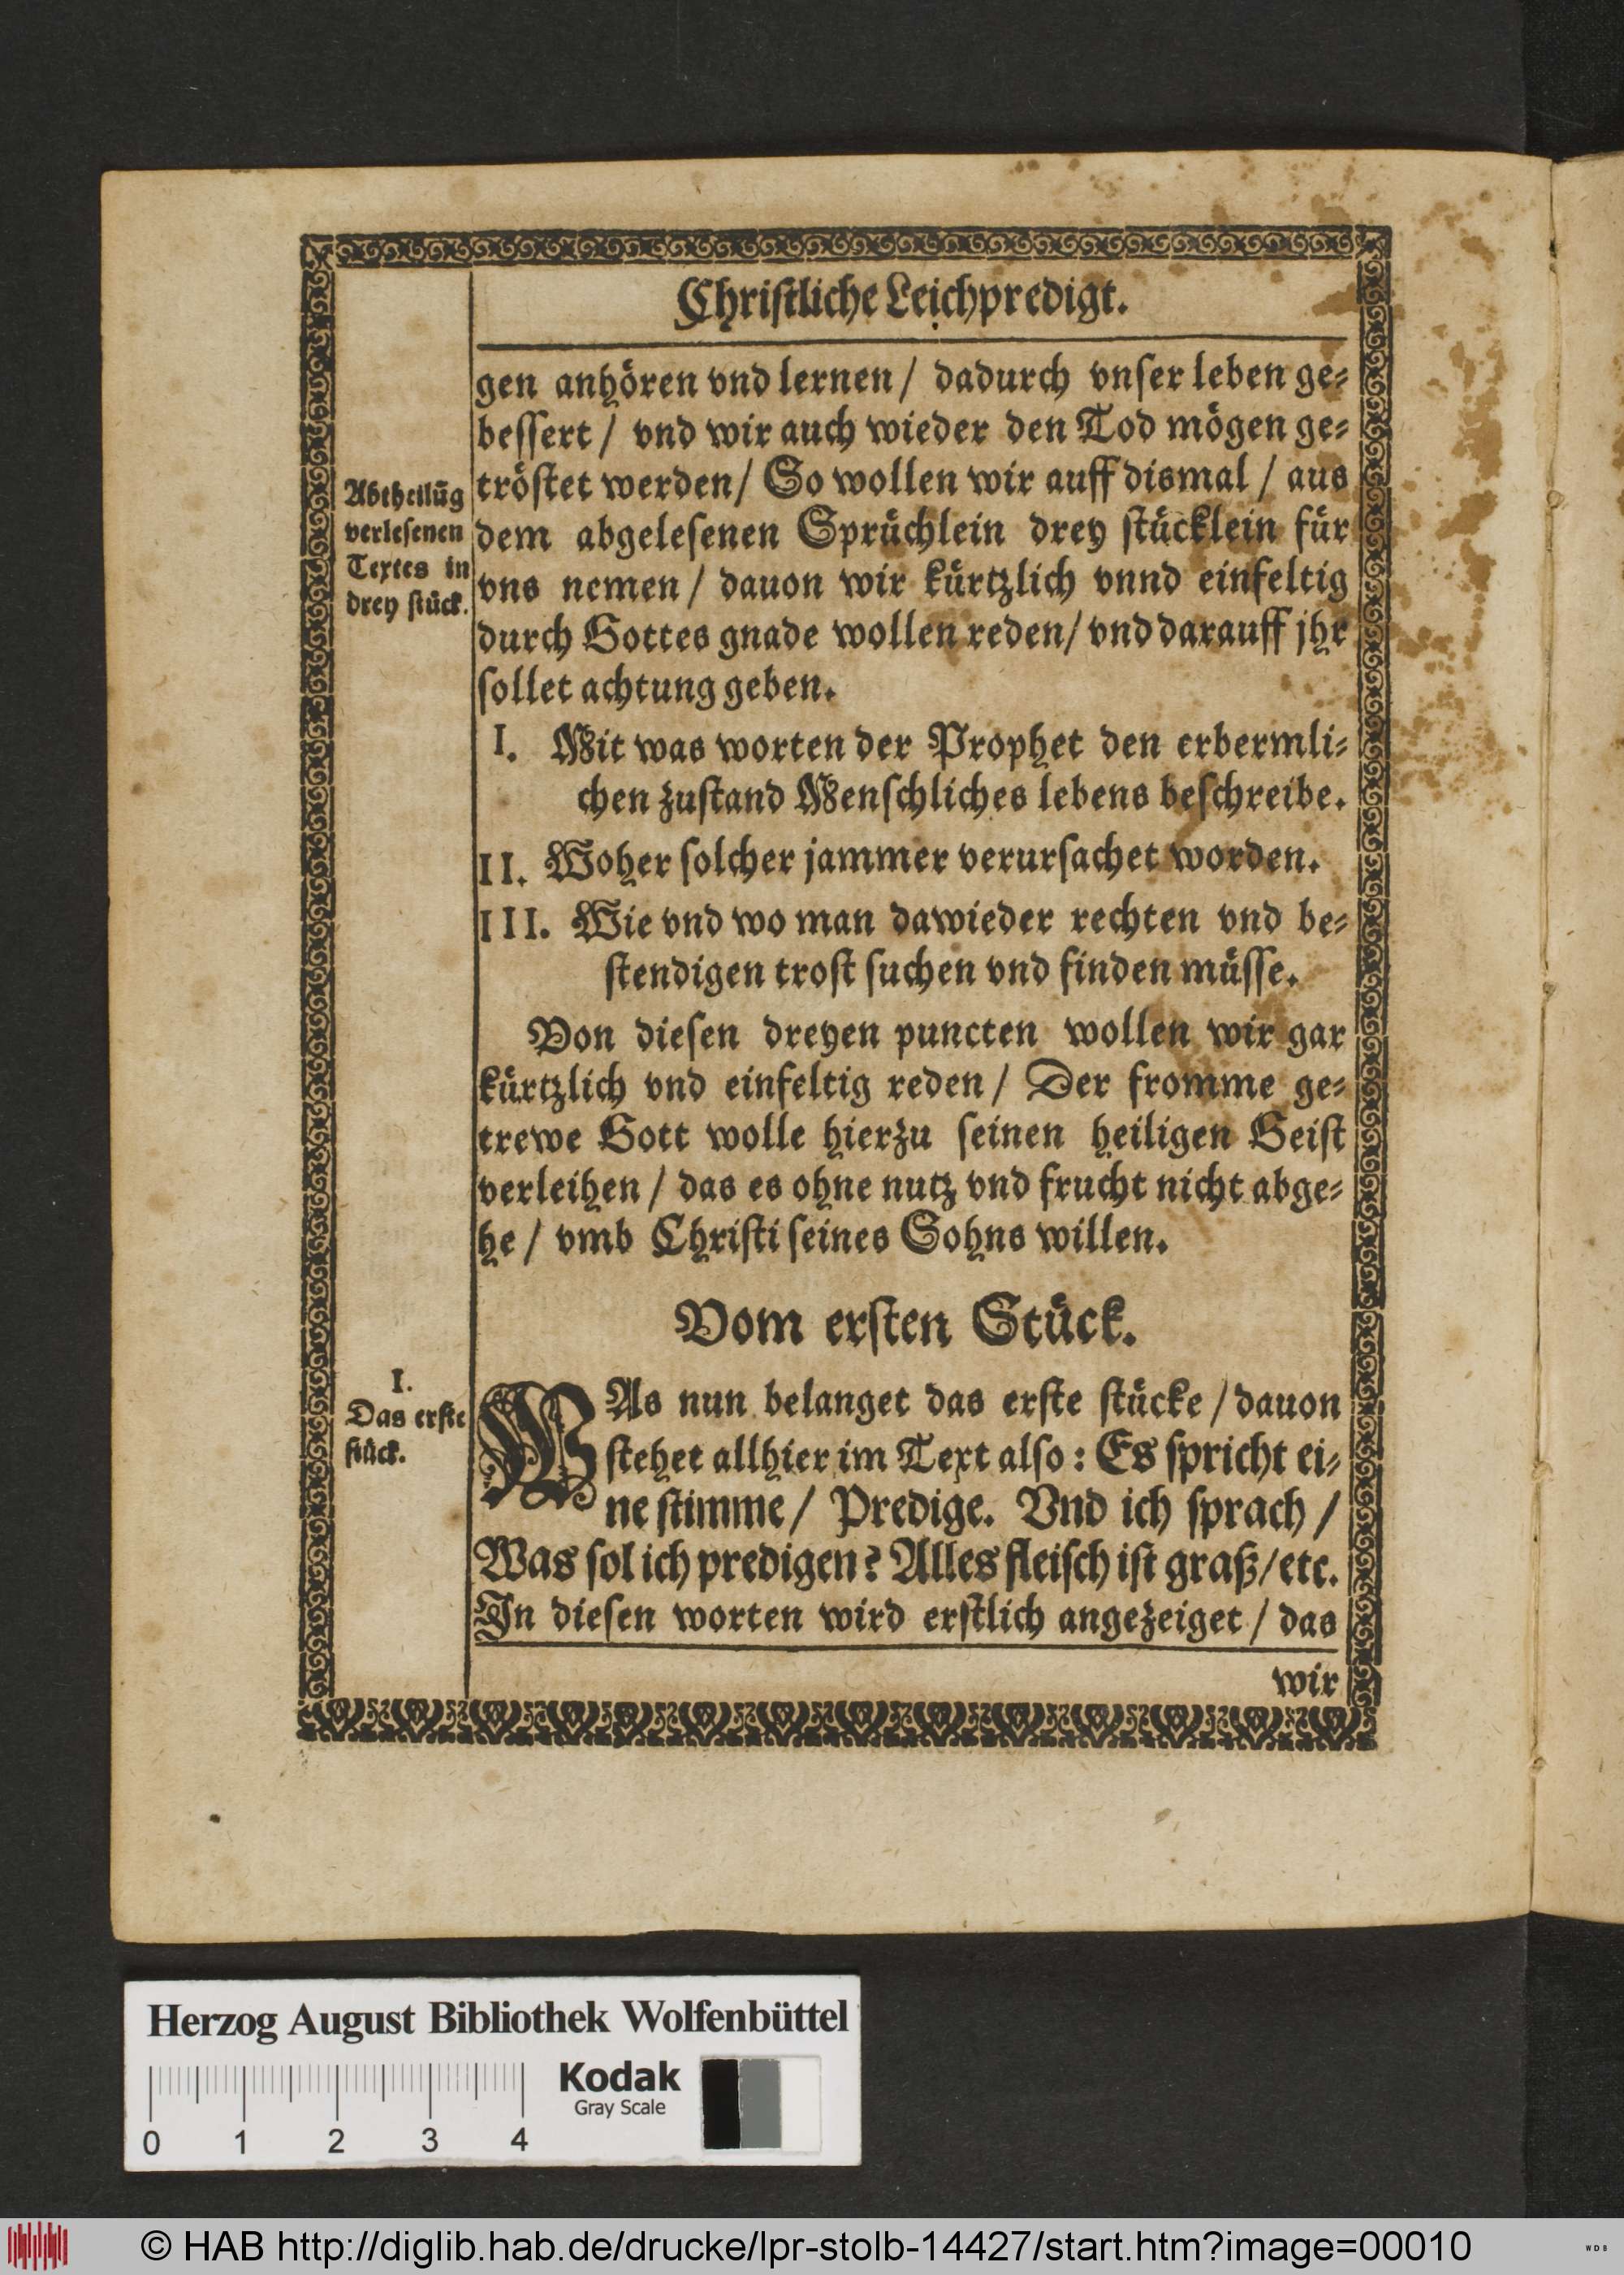 Christliche Leichpredigt.
gen anhören vnd lernen / dadurch vnser leben ge-
bessert / vnd wir auch wieder den Tod mögen ge-
tröstet werden / So wollen wir auff dismal / aus
dem abgelesenen Sprüchlein drey stücklein für
vns nemen / dauon wir kürtzlich vnnd einfeltig
durch Gottes gnade wollen reden / vnd darauff jhr
sollet achtung geben.
Abtheilũg
verlesenen
Textes in
drey stück.
I. Mit was worten der Prophet den erbermli-
chen zustand Menschliches lebens beschreibe.
II. Woher solcher jammer verursachet worden.
III. Wie vnd wo man dawieder rechten vnd be-
stendigen trost suchen vnd finden müsse.
Von diesen dreyen puncten wollen wir gar
kürtzlich vnd einfeltig reden / Der fromme ge-
trewe Gott wolle hierzu seinen heiligen Geist
verleihen / das es ohne nutz vnd frucht nicht abge-
he / vmb Christi seines Sohns willen.
Vom ersten Stück.
I.
Das erste
stück.
WAs nun belanget das erste stücke / dauon
stehet allhier im Text also : Es spricht ei-
ne stimme / Predige. Vnd ich sprach /
Was sol ich predigen? Alles fleisch ist graß / etc.
In diesen worten wird erstlich angezeiget / das
wir
Herzog August Bibliothek Wolfenbüttel
Kodak
Gray Scale
0 1 2 3 4
© HAB http://diglib.hab.de/drucke/lpr-stolb-14427/start.htm?image=00010
WDB